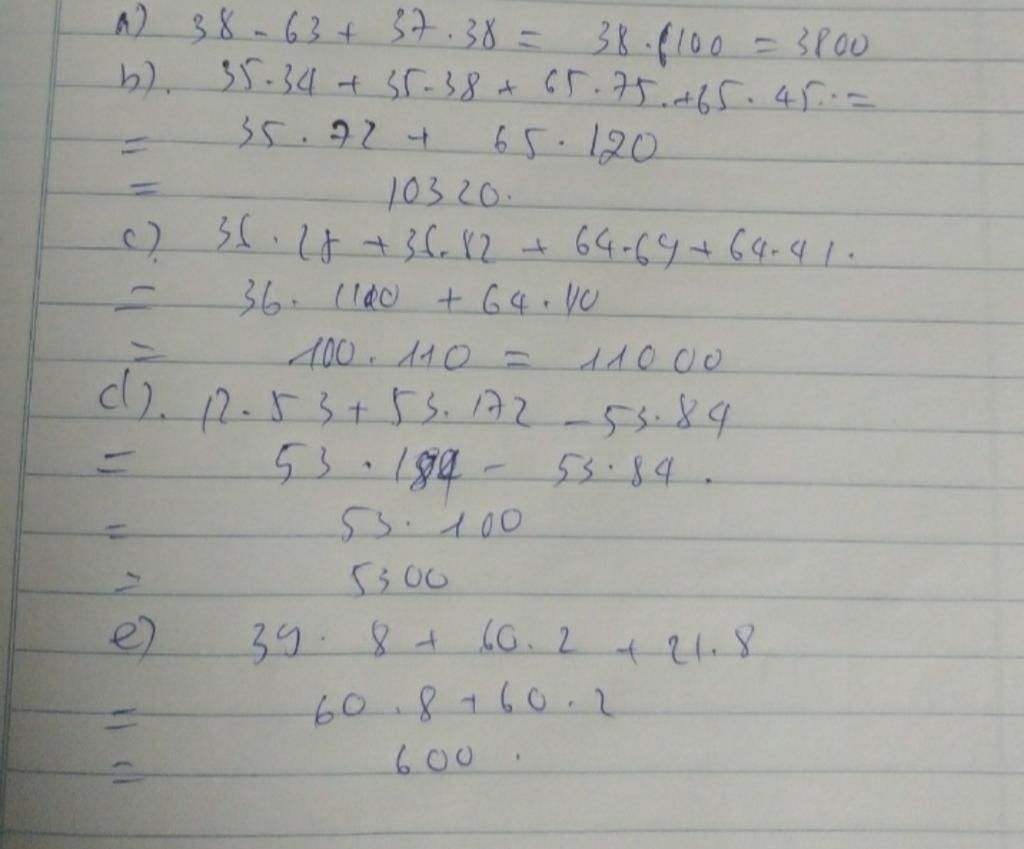 a) 38 - 63 + 37 . 38 = 38 . 100 = 3800
b). 35.34 + 35.38 + 65.75. + 65. 45.. =
= 35 . 72 + 65 . 120
= 10320.
c) 36 . 28 + 36.82 + 64.69 + 64.41.
= 36. 110 + 64 . 110
= 100 . 110 = 11000
d). 12.53 + 53.172 - 53.84
= 53 . 184 - 53.84 .
= 53. 100
= 5300
e) 39. 8 + 60. 2 + 21.8
= 60 . 8 + 60 . 2
= 600 .